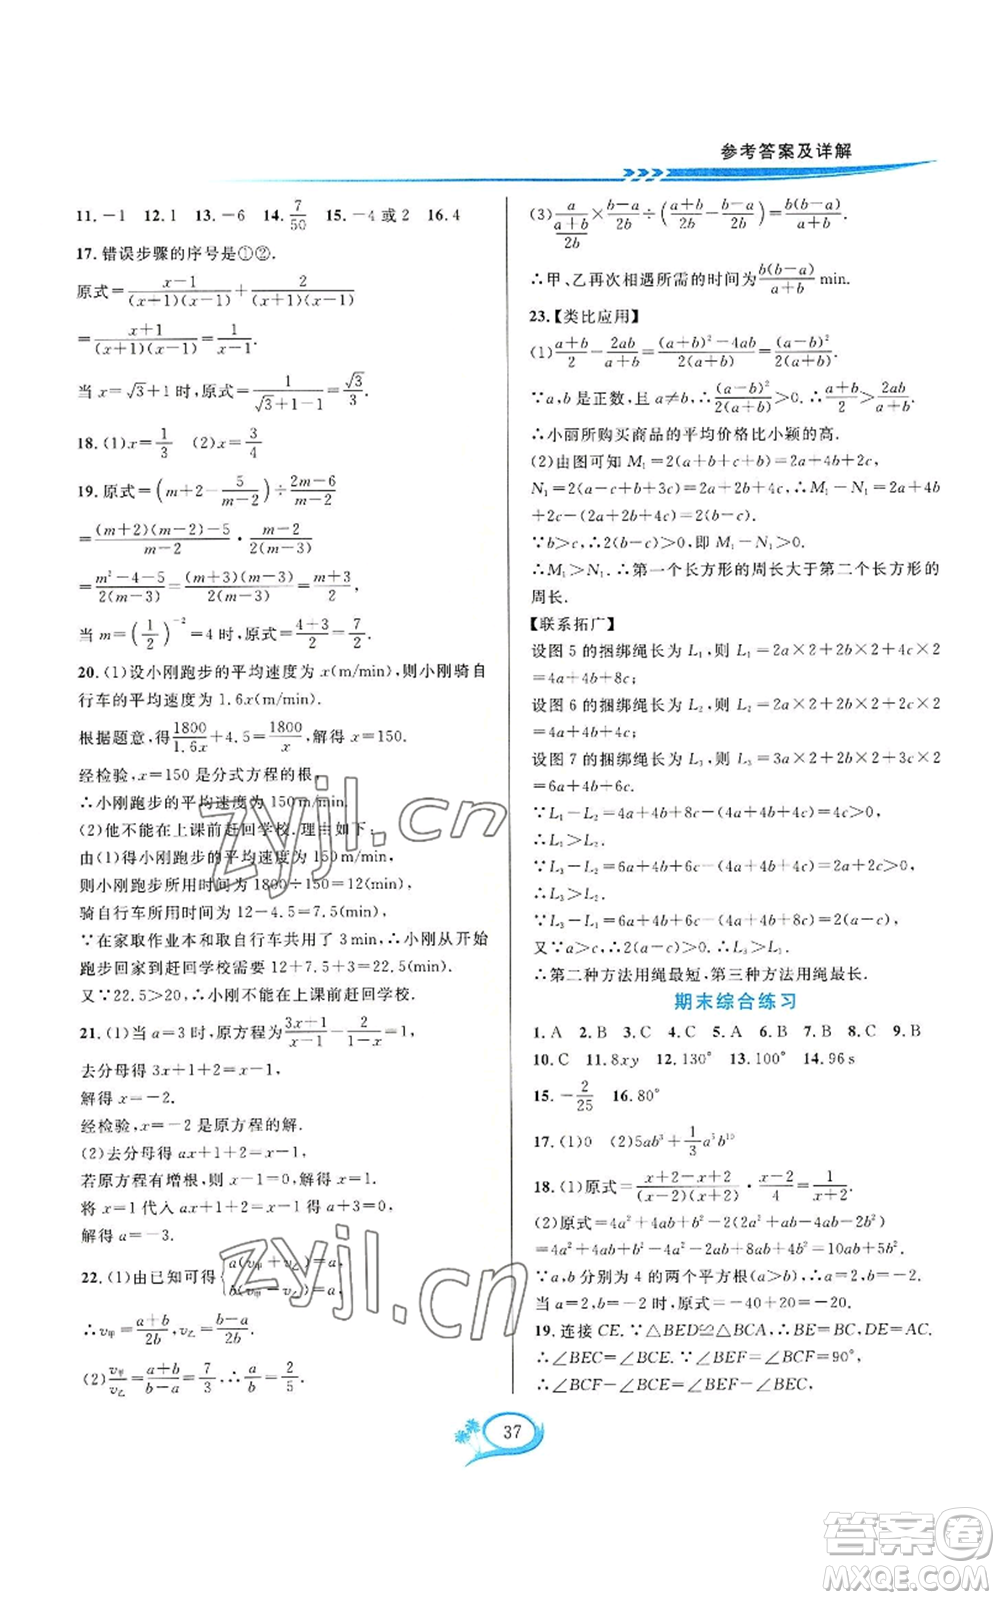 参考答案及详解
11.-1  12.1  13.-6  14.7/50  15.-4或2  16.4
17.错误步骤的序号是①②.
原式=(x-1)/((x+1)(x-1))+2/((x+1)(x-1))
=(x+1)/((x+1)(x-1))=1/(x-1).
当x=√3+1时,原式=1/(√3+1-1)=√3/3.
18.(1)x=1/3  (2)x=3/4
19.原式=(m+2-5/(m-2))÷(2m-6)/(m-2)
=((m+2)(m-2)-5)/(m-2)·(m-2)/
=(m²-4-5)/(2(m-3))=((m+3)(m-3))/(2(m-3))=(m+3)/2,
当m=(1/2)⁻²=4时,原式=(4+3)/2=7/2.
20.(1)设小刚跑步的平均速度为x(m/min),则小刚骑自
行车的平均速度为1.6x(m/min).
根据题意,得1800/1.6x+4.5=1800/x,解得x=150.
经检验,x=150是分式方程的根,
∴小刚跑步的平均速度为150m/min.
(2)他不能在上课前赶回学校.理由如下:
由(1)得小刚跑步的平均速度为150m/min,
则小刚跑步所用时间为1800÷150=12(min),
骑自行车所用时间为12-4.5=7.5(min),
∵在家取作业本和取自行车共用了3min,∴小刚从开始
跑步回家到赶回学校需要12+7.5+3=22.5(min).
又∵22.5>20,∴小刚不能在上课前赶回学校.
21.(1)当a=3时,原方程为(3x+1)/(x-1)-2/(1-x)=1,
去分母得3x+1+2=x-1,
解得x=-2.
经检验,x=-2是原方程的解.
(2)去分母得ax+1+2=x-1,
若原方程有增根,则x-1=0,解得x=1,
将x=1代入ax+1+2=x-1,得a+3=0,
解得a=-3.
22.(1)由已知可得{a(v甲+v乙)=a, b(v甲-v乙)=a,
∴v甲=(a+b)/2b,v乙=(b-a)/2b.
(2)v甲/v乙=(a+b)/(b-a)=7/3,∴a/b=2/5.
(3)a/((a+b)/2b)×(b-a)/2b÷((a+b)/2b-(b-a)/2b)=b(b-a)/(a+b).
∴甲、乙再次相遇所需的时间为b(b-a)/(a+b) min.
23.【类比应用】
(1)(a+b)/2-2ab/(a+b)=((a+b)²-4ab)/(2(a+b))=(a-b)²/(2(a+b)).
∵a,b是正数,且a≠b,∴(a-b)²/(2(a+b))>0.∴(a+b)/2>2ab/(a+b).
∴小丽所购买商品的平均价格比小颖的高.
(2)由图可知M₁=2(a+b+c+b)=2a+4b+2c,
N₁=2(a-c+b+3c)=2a+2b+4c,∴M₁-N₁=2a+4b
+2c-(2a+2b+4c)=2(b-c).
∵b>c,∴2(b-c)>0,即M₁-N₁>0.
∴M₁>N₁.∴第一个长方形的周长大于第二个长方形的
周长.
【联系拓广】
设图5的捆绑绳长为L₁,则L₁=2a×2+2b×2+4c×2
=4a+4b+8c;
设图6的捆绑绳长为L₂,则L₂=2a×2+2b×2+2c×2
=4a+4b+4c;
设图7的捆绑绳长为L₃,则L₃=3a×2+2b×2+3c×2
=6a+4b+6c.
∵L₁-L₂=4a+4b+8c-(4a+4b+4c)=4c>0,
∴L₁>L₂.
∵L₃-L₂=6a+4b+6c-(4a+4b+4c)=2a+2c>0,
∴L₃>L₂.
∵L₃-L₁=6a+4b+6c-(4a+4b+8c)=2(a-c),
又∵a>c,∴2(a-c)>0.∴L₃>L₁.
∴第二种方法用绳最短,第三种方法用绳最长.
期末综合练习
1.A  2.B  3.C  4.C  5.A  6.B  7.B  8.C  9.B
10.C  11.8xy  12.130°  13.100°  14.96 s
15.-2/25  16.80°
17.(1)0  (2)5ab³+1/3a⁵b¹⁰
18.(1)原式=(x+2-x+2)/((x-2)(x+2))·(x-2)/4=1/(x+2).
(2)原式=4a²+4ab+b²
=4a²+4ab+b²-4a²+6ab+4b²=10ab+5b².
∵a,b分别为4的两个平方根(a>b),∴a=2,b=-2.
当a=2,b=-2时,原式=-40+20=-20.
19.连接CE.∵△BED≌△BCA,∴BE=BC,DE=AC.
∴∠BEC=∠BCE.∵∠BEF=∠BCF=90°,
∴∠BCF-∠BCE=∠BEF-∠BEC,
37
zyjl.cn
zyjl.cn
答案圈